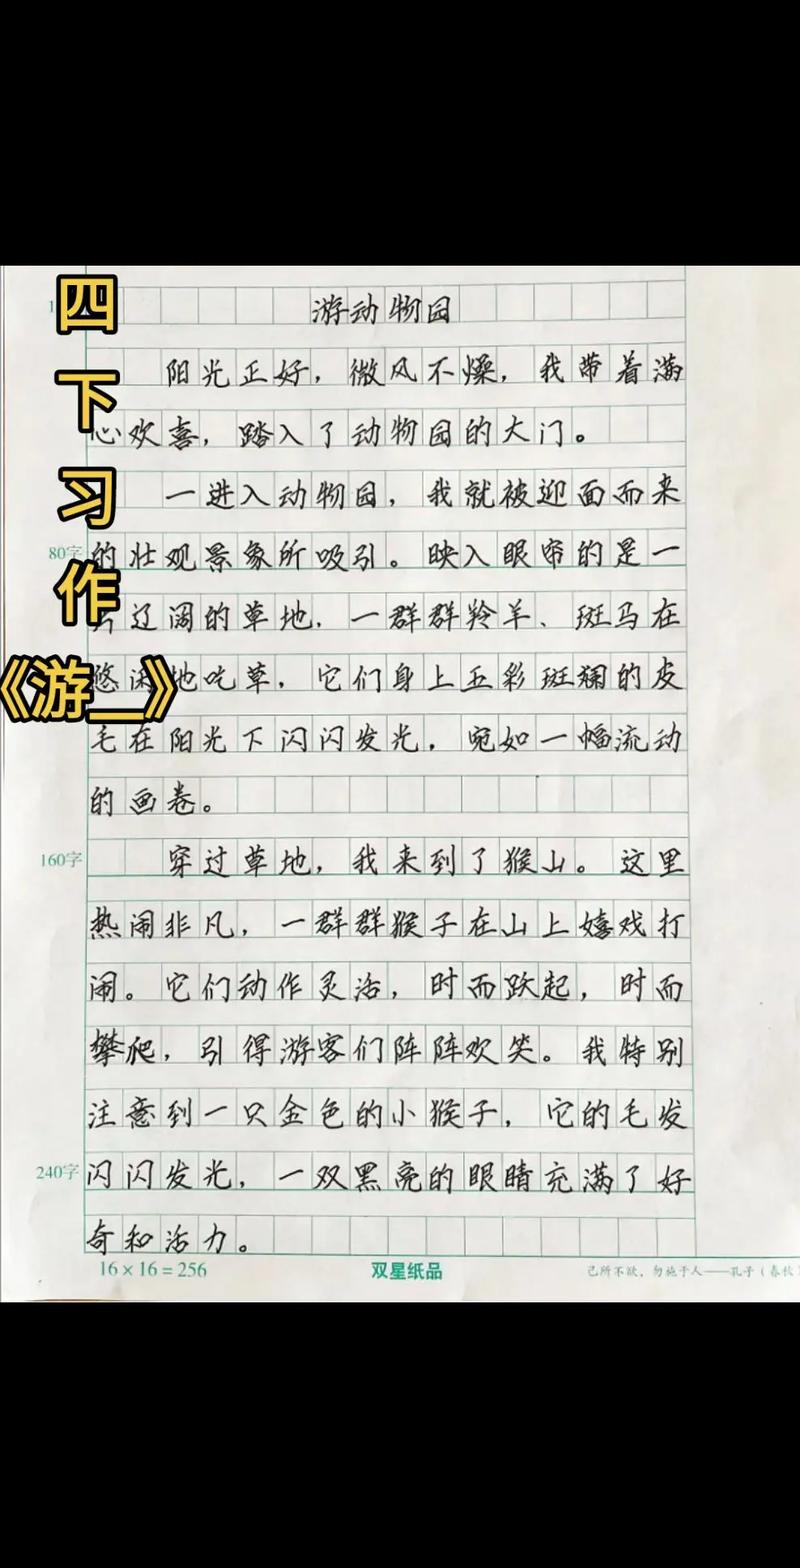 四下习作
《游__》
游动物园
阳光正好，微风不燥，我带着满
心欢喜，踏入了动物园的大门。
一进入动物园，我就被迎面而来
80字
的壮观景象所吸引。映入眼帘的是一
辽阔的草地，一群群羚羊、斑马在
悠闲地吃草，它们身上五彩斑斓的皮
毛在阳光下闪闪发光，宛如一幅流动
的画卷。
160字
穿过草地，我来到了猴山。这里
热闹非凡，一群群猴子在山上嬉戏打
闹。它们动作灵活，时而跃起，时而
攀爬，引得游客们阵阵欢笑。我特别
注意到一只金色的小猴子，它的毛发
240字
闪闪发光，一双黑亮的眼睛充满了好
奇和活力。
16×16=256 双星纸品 己所不欲，勿施于人——孔子（春秋）